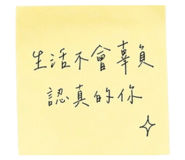 生活不會辜負
認真的你